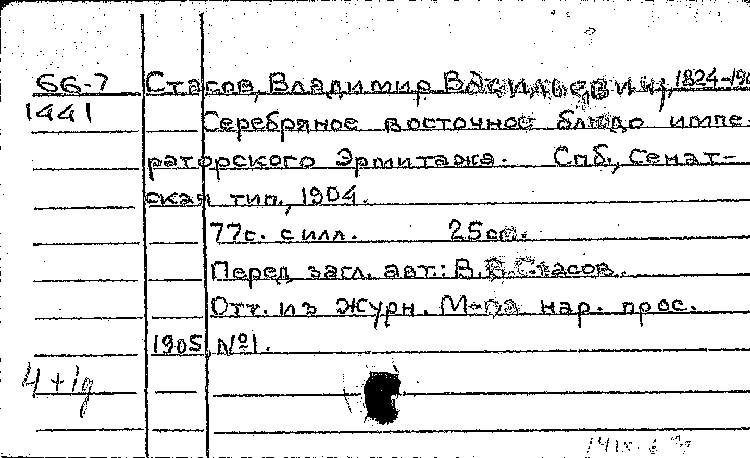 66-7 Стасов, Владимир Васильевич, 1824-190
1441 Серебряное восточное блюдо импе-
раторского Эрмитажа. Спб., Сенат-
ская тип., 1904.
77с. с илл. 25см.
Перед загл. авт.: В.В.Стасов.
Отт. изъ Журн. М-ва нар. прос.
1905, №1.
4+1д